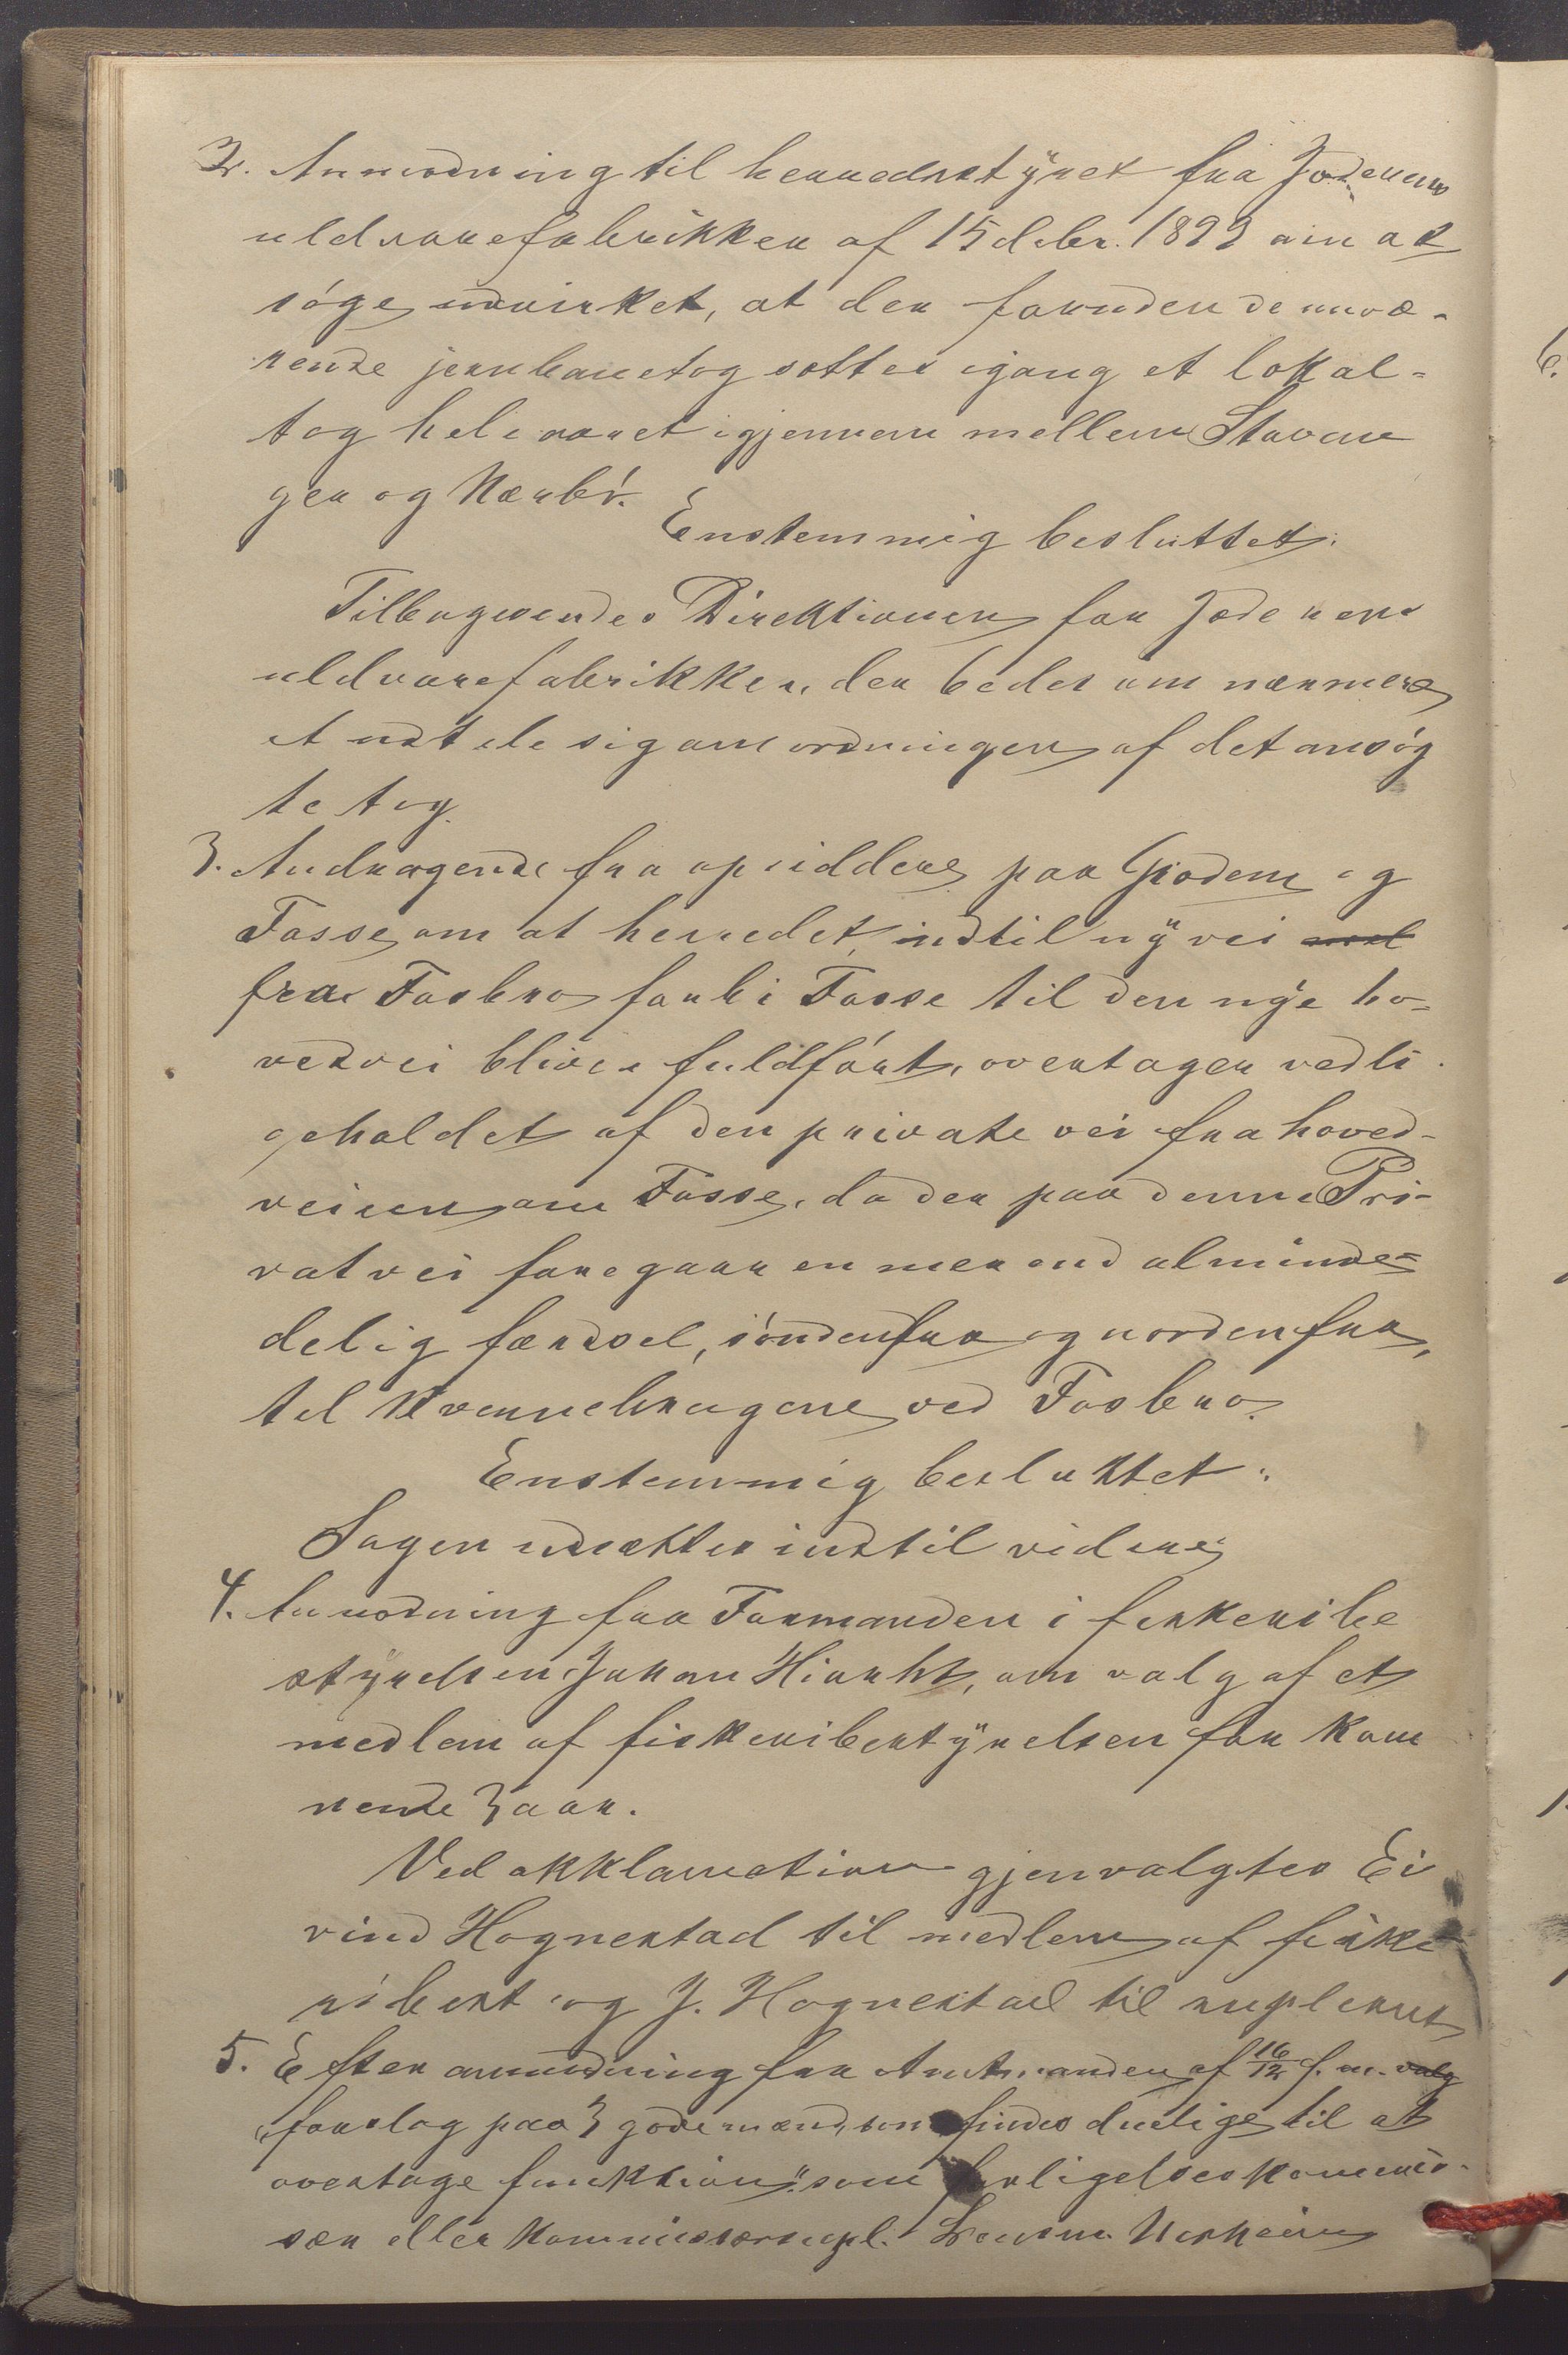 2. Anmodning til herredsstyret fra Jæderens
uldvarefabrikker af 15 debr. 1899 om at
søge udvirket, at der foruden de nuvæ-
rende jernbanetog sættes igang et lokal-
tog hele aaret igjennem mellem Stavan
ger og Nærbø.
Enstemmig besluttet:
Tilbagesendes Direktionen for Jæderens
uldvarefabrikker, der bedes om nærmere
at udtale sig om ordningen af det ansøg
te tog.
3. Andragende fra opsiddere paa Gjødem og
Fosse, om at herredet, indtil ny vei
fra Fosbro forbi Fosse til den nye ho-
vedvei bliver fuldført, overtager vedli-
geholdet af den private vei fra hoved-
veien om Fosse, da der paa denne Pri-
vatvei foregaar en mer end alminde-
delig færdsel, søndenfra og nordenfra,
til Kvernebrugene ved Fosbro.
Enstemmig besluttet:
Sagen udsættes indtil videre
4. Anmodning fra Formanden i fiskeribe
styrelsen Johan Hiorth, om valg af et
medlem af fiskeribestyrelsen for kom
mende 3 aar.
Ved akklamation gjenvalgtes Ei
vind Hognestad til medlem af fiske
ribest og J. Hognestad til supleant
5. Efter anmodning fra Amtmanden af 16/12 f. m. valg
forslag paa 3 gode mænd, som findes duelige til at
overtage funktion som forligelseskommis-
sær eller kommissærsupl. Lensm. Nerheim